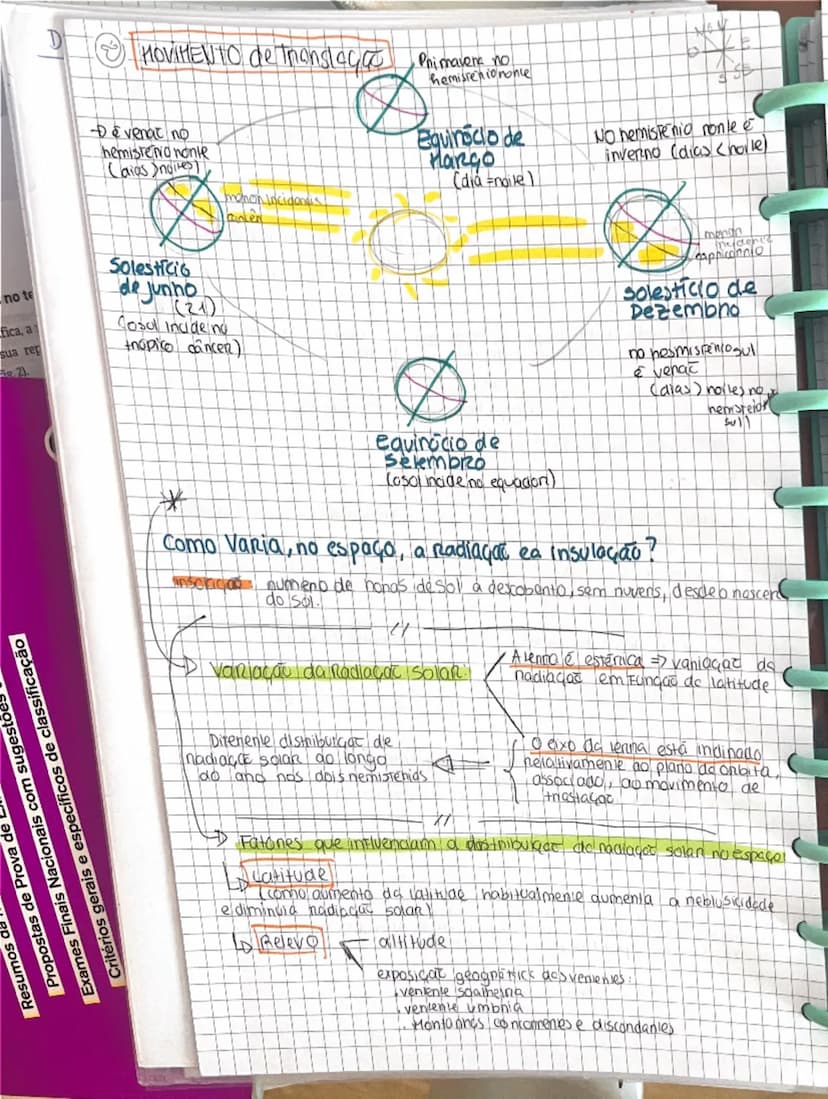 D
MOVIMENTO de Translaçaõ
Primavera no
hemisfério norte
N
E
S
SE
O
→ é veraõ no
hemisfério norte
(dias > noites)
Equinócio de
Março
(dia = noite)
No hemisfério norte é
inverno (dias < noite)
menor incidencia
cancer
menor
incidencia
capricornio
Solestício
de junho
(21)
(o sol incide no
trópico câncer)
Solestício de
Dezembro
no hesmisfério sul
é veraõ
(dias > noites no
hemisfério
sul)
Equinócio de
Setembro
(o sol incide no equador)
Como varia, no espaço, a Radiaçaõ e a insulação?
insolaçaõ número de horas de sol a descoberto, sem nuvens, desde o nascer
do sol.
Variação da Radiaçaõ solar.
A terra é esférica ⇒ variaçaõ da
radiaçaõ em função da latitude
Diferente distribuiçaõ de
radiaçaõ solar ao longo
do ano nos dois hemisférios
O eixo da terra está inclinado
relativamente ao plano da orbita,
associado, ao movimento de
traslaçaõ
→ Fatores que influenciam a distribuiçaõ da radiaçaõ solar no espaço
Latitude
(com o aumento da latitude, habitualmente aumenta a neblusidade
e diminui a radiaçaõ solar)
Relevo
altitude
exposiçaõ geográfica das vertentes:
. vertente soalheira
. vertente umbria
. Montanhas concordantes e discordantes
no te
fica, a
sua rep
Resumos da
Propostas de Prova de
com sugestões
Exames Finais Nacionais
Critérios gerais e específicos de classificação